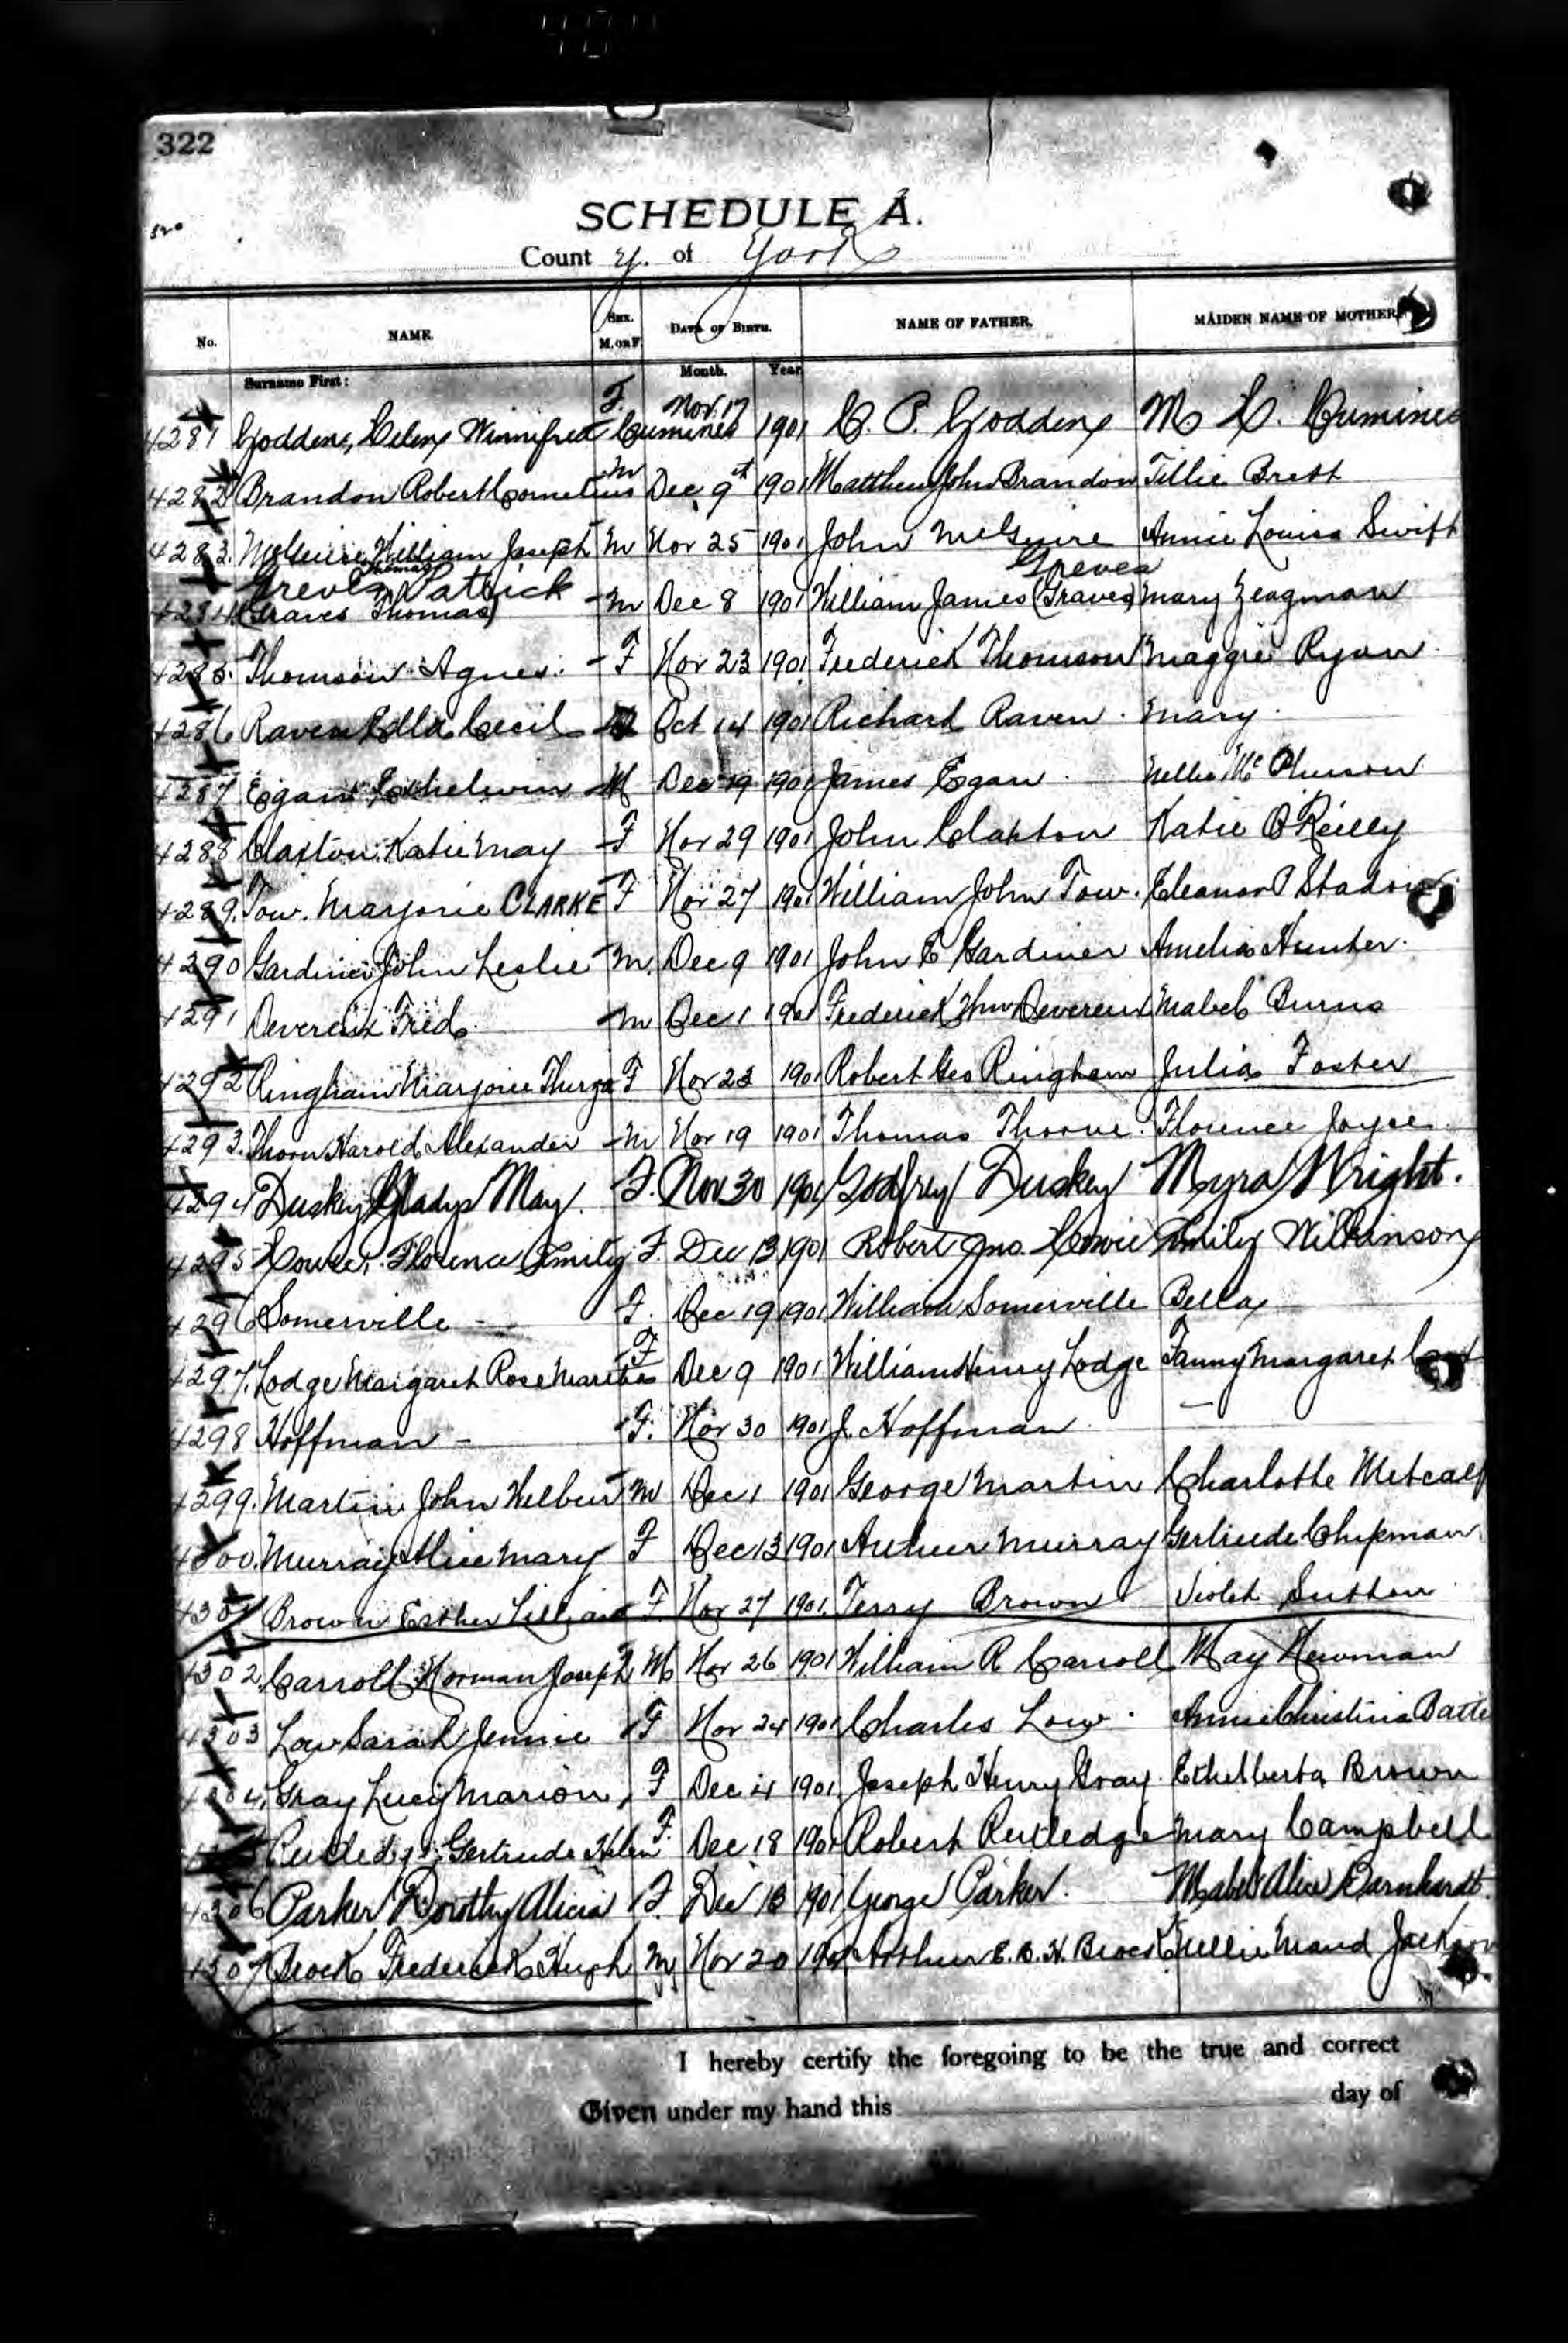 322
SCHEDULE A.
County. of York
No. NAME. Sex. M. or F. DATE OF BIRTH. NAME OF FATHER. MAIDEN NAME OF MOTHER
Surname First: Month. Year
4281 Godden, Helen Winnifred Cumines F. Nov. 17 1901 C. P. Godden M. L. Cumines
4282 Brandon Robert Cornelius M Dec 9th 1901 Matthew John Brandon Tillie Brett
4283. McGuire William Joseph M Nov 25 1901 John McGuire Annie Louisa Swift
Greves Thomas Patrick Greves
4284 (Graves Thomas) M Dec 8 1901 William James (Graves) Mary Zeagman
4285. Thomson Agnes. F Nov 23 1901 Frederick Thomson Maggie Ryan
4286 Raven Cecil Oct 14 1901 Richard Raven. Mary.
4287 Egan M Dec 19 1901 James Egan Nellie
4288 Claxton Katie May F Nov 29 1901 John Claxton Katie O'Reilly
4289. Tow. Marjorie CLARKE F Nov 27 1901 William John Tow. Eleanor
4290 Gardiner John Leslie M. Dec 9 1901 John E Gardiner Amelia Hunter.
4291 Devereux Fred. M Dec 1 1901 Frederick Devereux Mabel Burns
4292 Ringham Marjorie Thurza F Nov 23 1901 Robert Geo Ringham Julia Foster
4293. Thorn Harold Alexander M Nov 19 1901 Thomas Florence Joyce
4294 Duskey Gladys May. F. Nov 30 1901 Godfrey Duskey Myra Wright.
4295 Florence Emily F. Dec 13 1901 Robert Jno. Howie Emily Wilkinson
4296 Somerville - F. Dec 19 1901 William Somerville Bella
4297. Lodge Margaret Rose F Dec 9 1901 William Henry Lodge Fanny Margaret
4298 Hoffman - F. Nov 30 1901 J. Hoffman —
4299. Martin John Wilbur M Dec 1 1901 George Martin Charlotte Metcalf
4300. Murray Alice Mary F Dec 13 1901 Arthur Murray Gertrude Chipman
4301 Brown Esther Lillian F. Nov 27 1901. Terry Brown Violet Sutton
4302. Carroll Norman Joseph M Nov 26 1901 William R Carroll May Newman
4303 Low Sarah Jennie F Nov 24 1901 Charles Low. Annie Christina
4304. Gray Lucy Marion F Dec 4 1901 Joseph Henry Gray. Ethelberta Brown
Rutledge Gertrude Helen F. Dec 18 1901 Robert Rutledge Mary Campbell
4306 Parker Dorothy Alicia F. Dec 13 1901 George Parker. Mabel Alice Barnhardt.
4307 Brock Frederick Hugh M Nov 20 1901 Arthur E. B. H. Brock Nellie Maud Jackson
I hereby certify the foregoing to be the true and correct
Given under my hand this day of